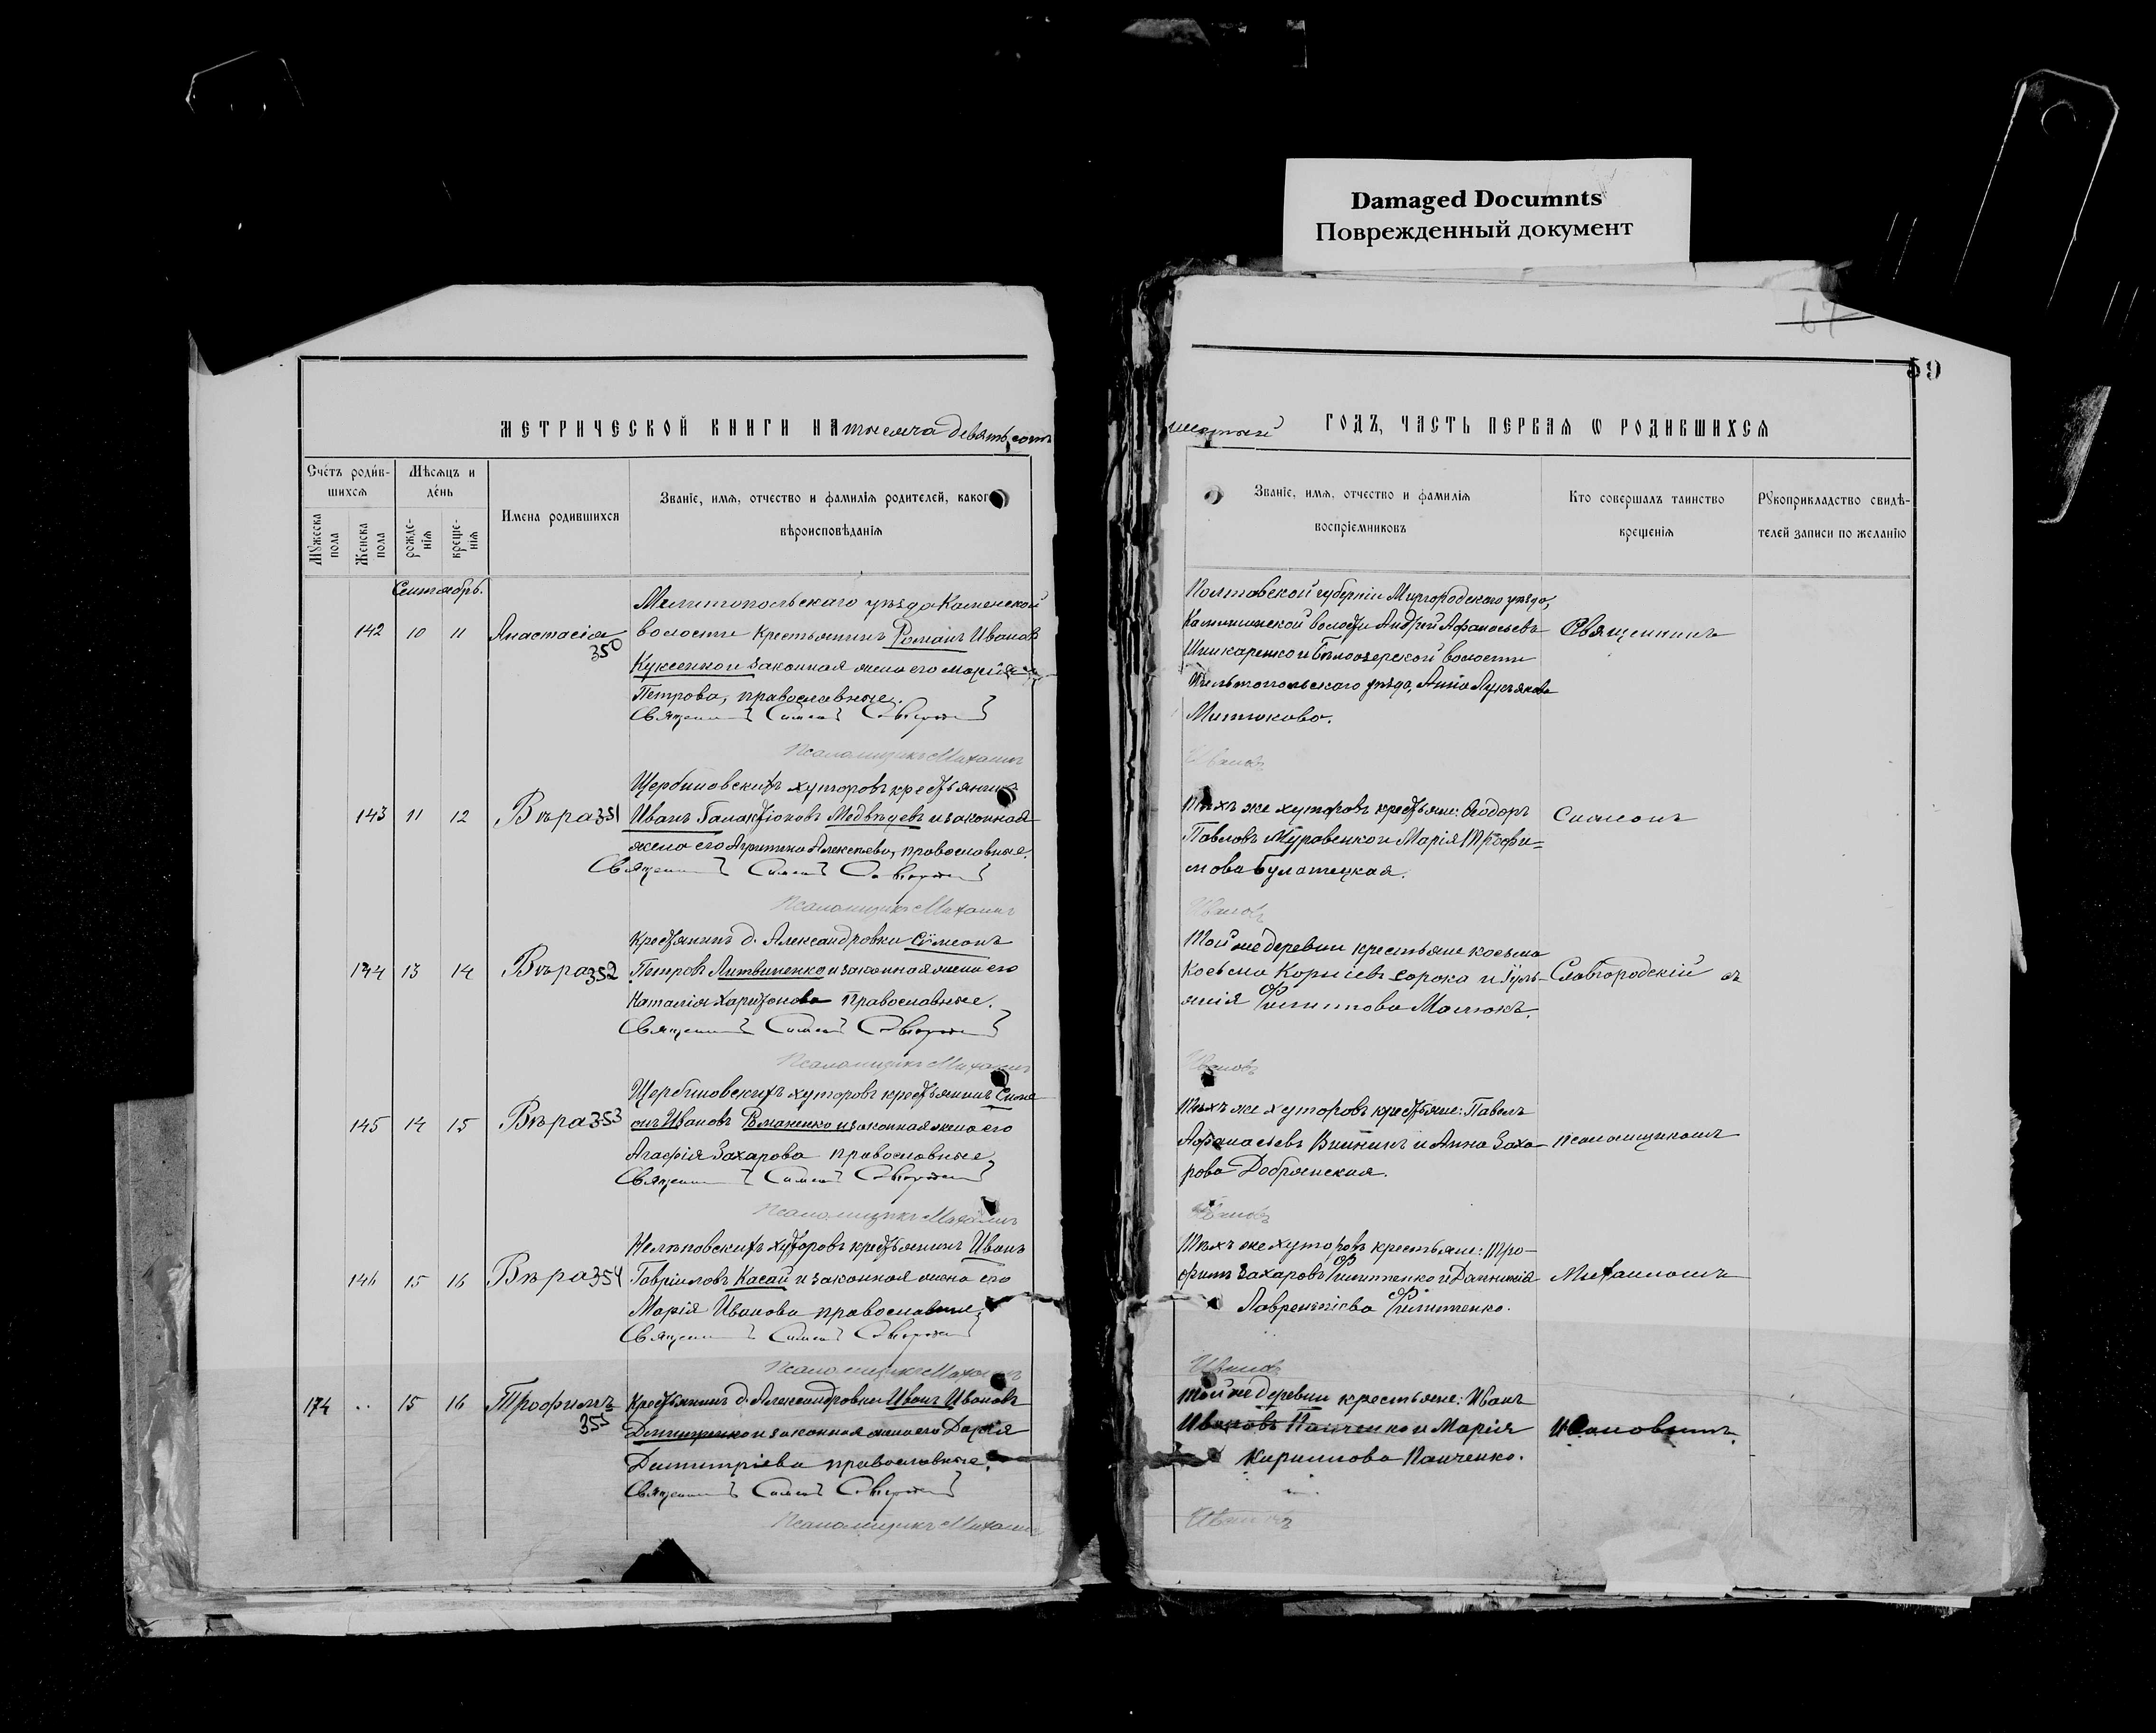 Damaged Documnts
Поврежденный документ
59
МЕТРИЧЕСКОЙ КНИГИ НА тысяча девятьсот
Счетъ родившихся
Мѣсяцъ и день
Мужеска пола
Женска пола
рожденія
крещенія
Имена родившихся
Званіе, имя, отчество и фамилія родителей, какого
вѣроисповѣданія
Сентябрь.
Мелитопольскаго уѣзда Каменской
142 10 11 Анастасія волости крестьянинъ Романъ Ивановъ
350
Куксенко и законная жена его Марія
Петрова, православные.
Священникъ Симеонъ
Псаломщикъ Михаилъ
Щербиновскихъ хуторовъ крестьянинъ
143 11 12 Вѣра 351 Иванъ Галактіоновъ Медвѣдевъ и законная
жена его Агрипина Алексѣева, православные.
Священникъ Симеонъ
Псаломщикъ Михаилъ
Крестьянинъ д. Александровки Сѵмеонъ
144 13 14 Вѣра 352 Петровъ Литвиненко и законная жена его
Наталія Харитонова православные.
Священникъ Симеонъ
Псаломщикъ Михаилъ
Щербиновскихъ хуторовъ крестьянинъ Симе
145 14 15 Вѣра 353 онъ Ивановъ Романенко и законная жена его
Агафія Захарова православные,
Священникъ Симеонъ
Псаломщикъ Михаилъ
Нелѣповскихъ хуторовъ крестьянинъ Иванъ
146 15 16 Вѣра 354 Гавріиловъ Касай и законная жена его
Марія Иванова православные,
Священникъ Симеонъ
Псаломщикъ Михаилъ
174 .. 15 16 Трофимъ Крестьянинъ д. Александровки Иванъ Ивановъ
355
и законная жена его Дарія
Димитріева православные.
Священникъ Симеонъ
Псаломщикъ Михаилъ
шестый ГОДЪ, ЧАСТЬ ПЕРВАЯ Ѡ РОДИВШИХСЯ
Званіе, имя, отчество и фамилія
воспріемниковъ
Кто совершалъ таинство
крещенія
Рукоприкладство свидѣ-
телей записи по желанію
Полтавской губерніи Миргородскаго уѣзда,
волости Андрей Афанасьевъ Священникъ
Шинкаренко и Бѣлозерской волости
Мелитопольскаго уѣзда, Анна Лукьянова
Митюкова.
Ивановъ
Тѣхъ же хуторовъ крестьяне: Ѳеодоръ Симеонъ
Павловъ Муравенко и Марія Трофи=
мова Булатецкая.
Ивановъ
Той же деревни крестьяне Косьма
Косьма Корніевъ Сорока и Іулі- Славгородскій съ
анія Филиппова Маслюкъ.
Ивановъ
Тѣхъ же хуторовъ крестьяне: Павелъ
Афанасьевъ Винникъ и Анна Заха- псаломщикомъ
рова Добрянская.
Ивановъ
Тѣхъ же хуторовъ крестьяне: Тро-
фимъ Захаровъ Филипенко и Домникія Михаиломъ
Лаврентіева Филипенко.
Ивановъ
той же деревни крестьяне: Иванъ
Ивановъ Панченко и Марія Ивановымъ.
Кириллова Панченко.
Ивановъ